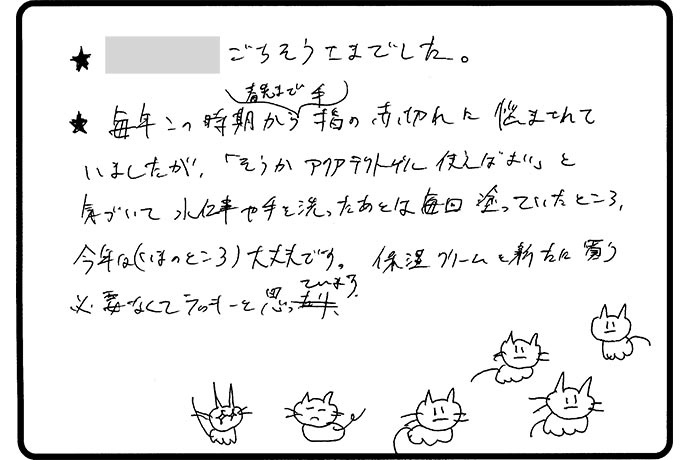 ★ ごちそうさまでした。
春先まで 手
★ 毎年この時期から 指の赤切れに 悩まされて
いましたが、「そうか アクアテクトゲル 使えばよい」と
気づいて 水仕事や手を洗ったあとは毎回 塗っていたところ、
今年は(いまのところ)大丈夫です。 保湿クリームを新たに 買う
ています。
必要なくてラッキーと思っ